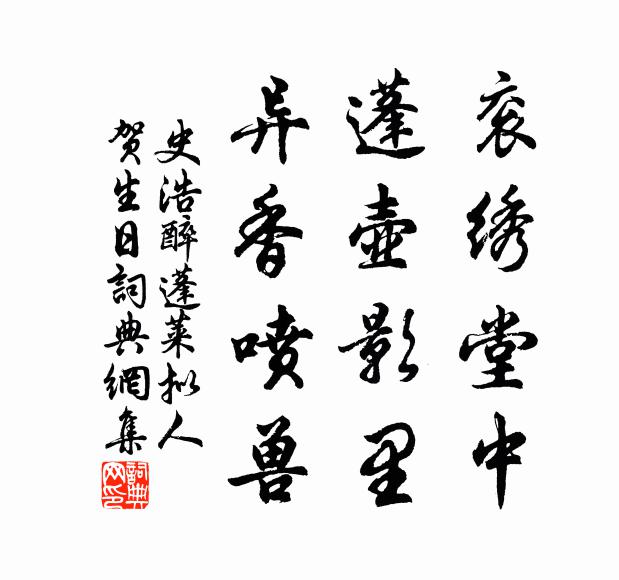 衮绣堂中
蓬壶影里
异香喷兽
史浩醉蓬莱拟人
贺生日詞典網集
詞典网印